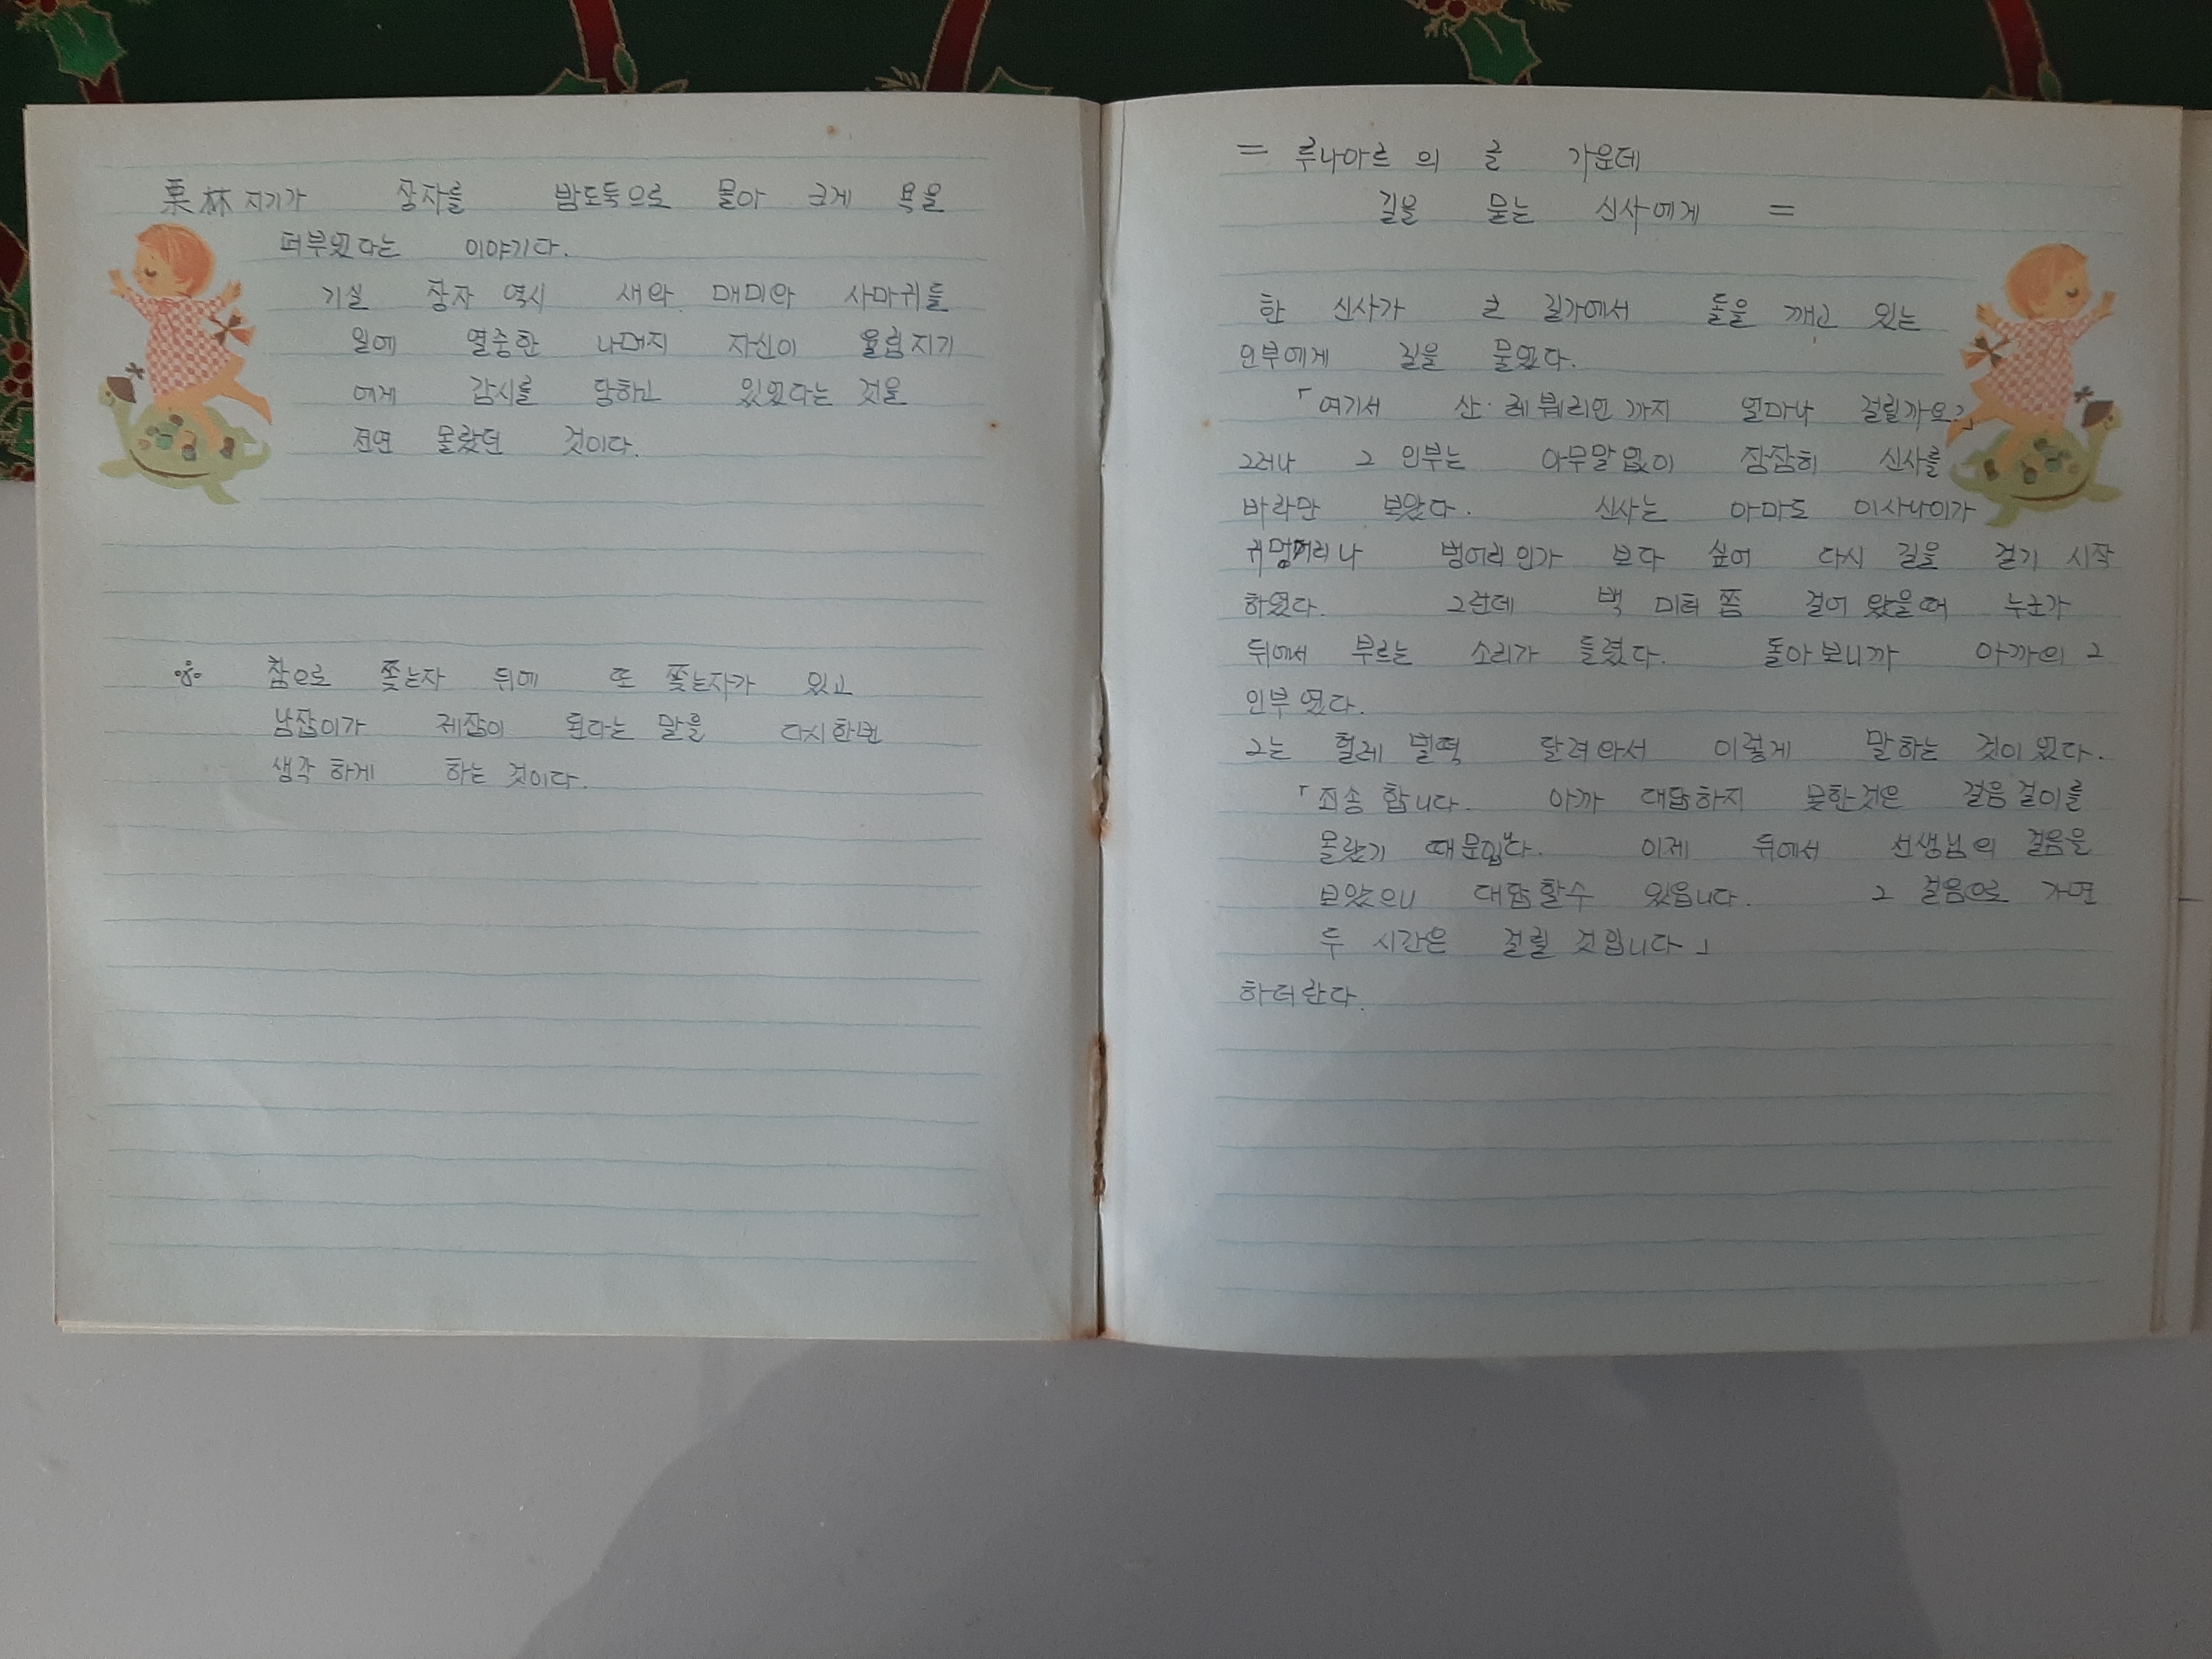 栗林지기가 장자를 밤도둑으로 몰아 크게 욕을
퍼부었다는 이야기다.
기실 장자 역시 새와 매미와 사마귀를
일에 열중한 나머지 자신이 율림지기
에게 감시를 당하고 있었다는 것을
전연 몰랐던 것이다.
※ 참으로 쫓는자 뒤에 또 쫓는자가 있고
남잡이가 제잡이 된다는 말을 다시한번
생각 하게 하는 것이다.
= 루나아르 의 글 가운데
길을 묻는 신사에게 =
한 신사가 큰 길가에서 돌을 깨고 있는
인부에게 길을 물었다.
「여기서 산·레뷔리안 까지 얼마나 걸릴까요?」
그러나 그 인부는 아무말없이 잠잠히 신사를
바라만 보았다. 신사는 아마도 이사나이가
귀멍머리나 벙어리인가 보다 싶어 다시 길을 걷기 시작
하였다. 그런데 백 미터 쯤 걸어 왔을때 누군가
뒤에서 부르는 소리가 들렸다. 돌아보니까 아까의 그
인부 였다.
그는 헐레 벌떡 달려와서 이렇게 말하는 것이었다.
「죄송 합니다. 아까 대답하지 못한것은 걸음걸이를
몰랐기 때문입니다. 이제 뒤에서 선생님의 걸음을
보았으니 대답할수 있읍니다. 그 걸음으로 가면
두 시간은 걸릴 것입니다」
하더란다.